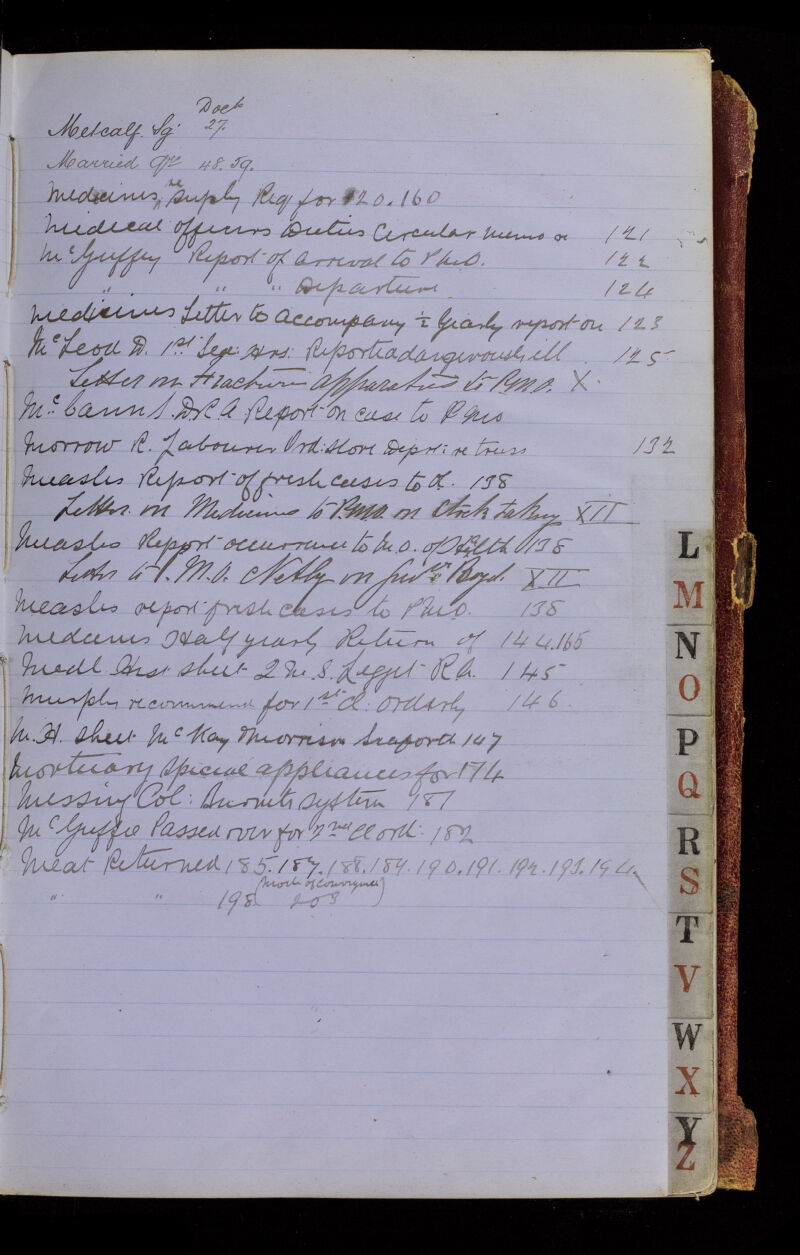 Dock
Metcalf. Sgt 27.
Married Qrs 48. 59.
Medicines, re Supply Req for 120. 160
Medical officers Duties Circular memo re 121
McGuffey Report of arrival to PMO. 122
" " " Departure 124
Medicines Letter to accompany ½ Yearly report on 123
McLeod D. 1st Sea: Hrs: Reported dangerously ill. 125
Letter on Fracture apparatus to P.M.O. X.
McCann J. R.A Report on case to PMO
Morrow R. Labourer Ord: Store Dept: re truss 132
Measles Report of fresh cases to 138
Letter on Medicines to P.M.O. on Stock taking XII
Measles Report occurrence to M.O. of Hlth 138
Letter to P.M.O. Netly on Boyd. XII
Measles report fresh cases to PMO. 138
Medicines Half yearly Return of 144.165
Medl Hist sheet 2 M. S. Legget R.A. 145
Murphy recommend for 1st Cl: orderly 146.
M.H. sheet McKay Morrison Seaforth 147
Mortuary Special appliances for 174
Messing Col: Burnetts system 181
McGuffie Passed over for 2nd Cl ord: 182
Meat Returned 185. 187. 188. 189. 190. 191. 192. 193. 194.
" " 198. (Mode of conveyance) 203
L
M
N
O
P
Q
R
S
T
V
W
X
Y
Z